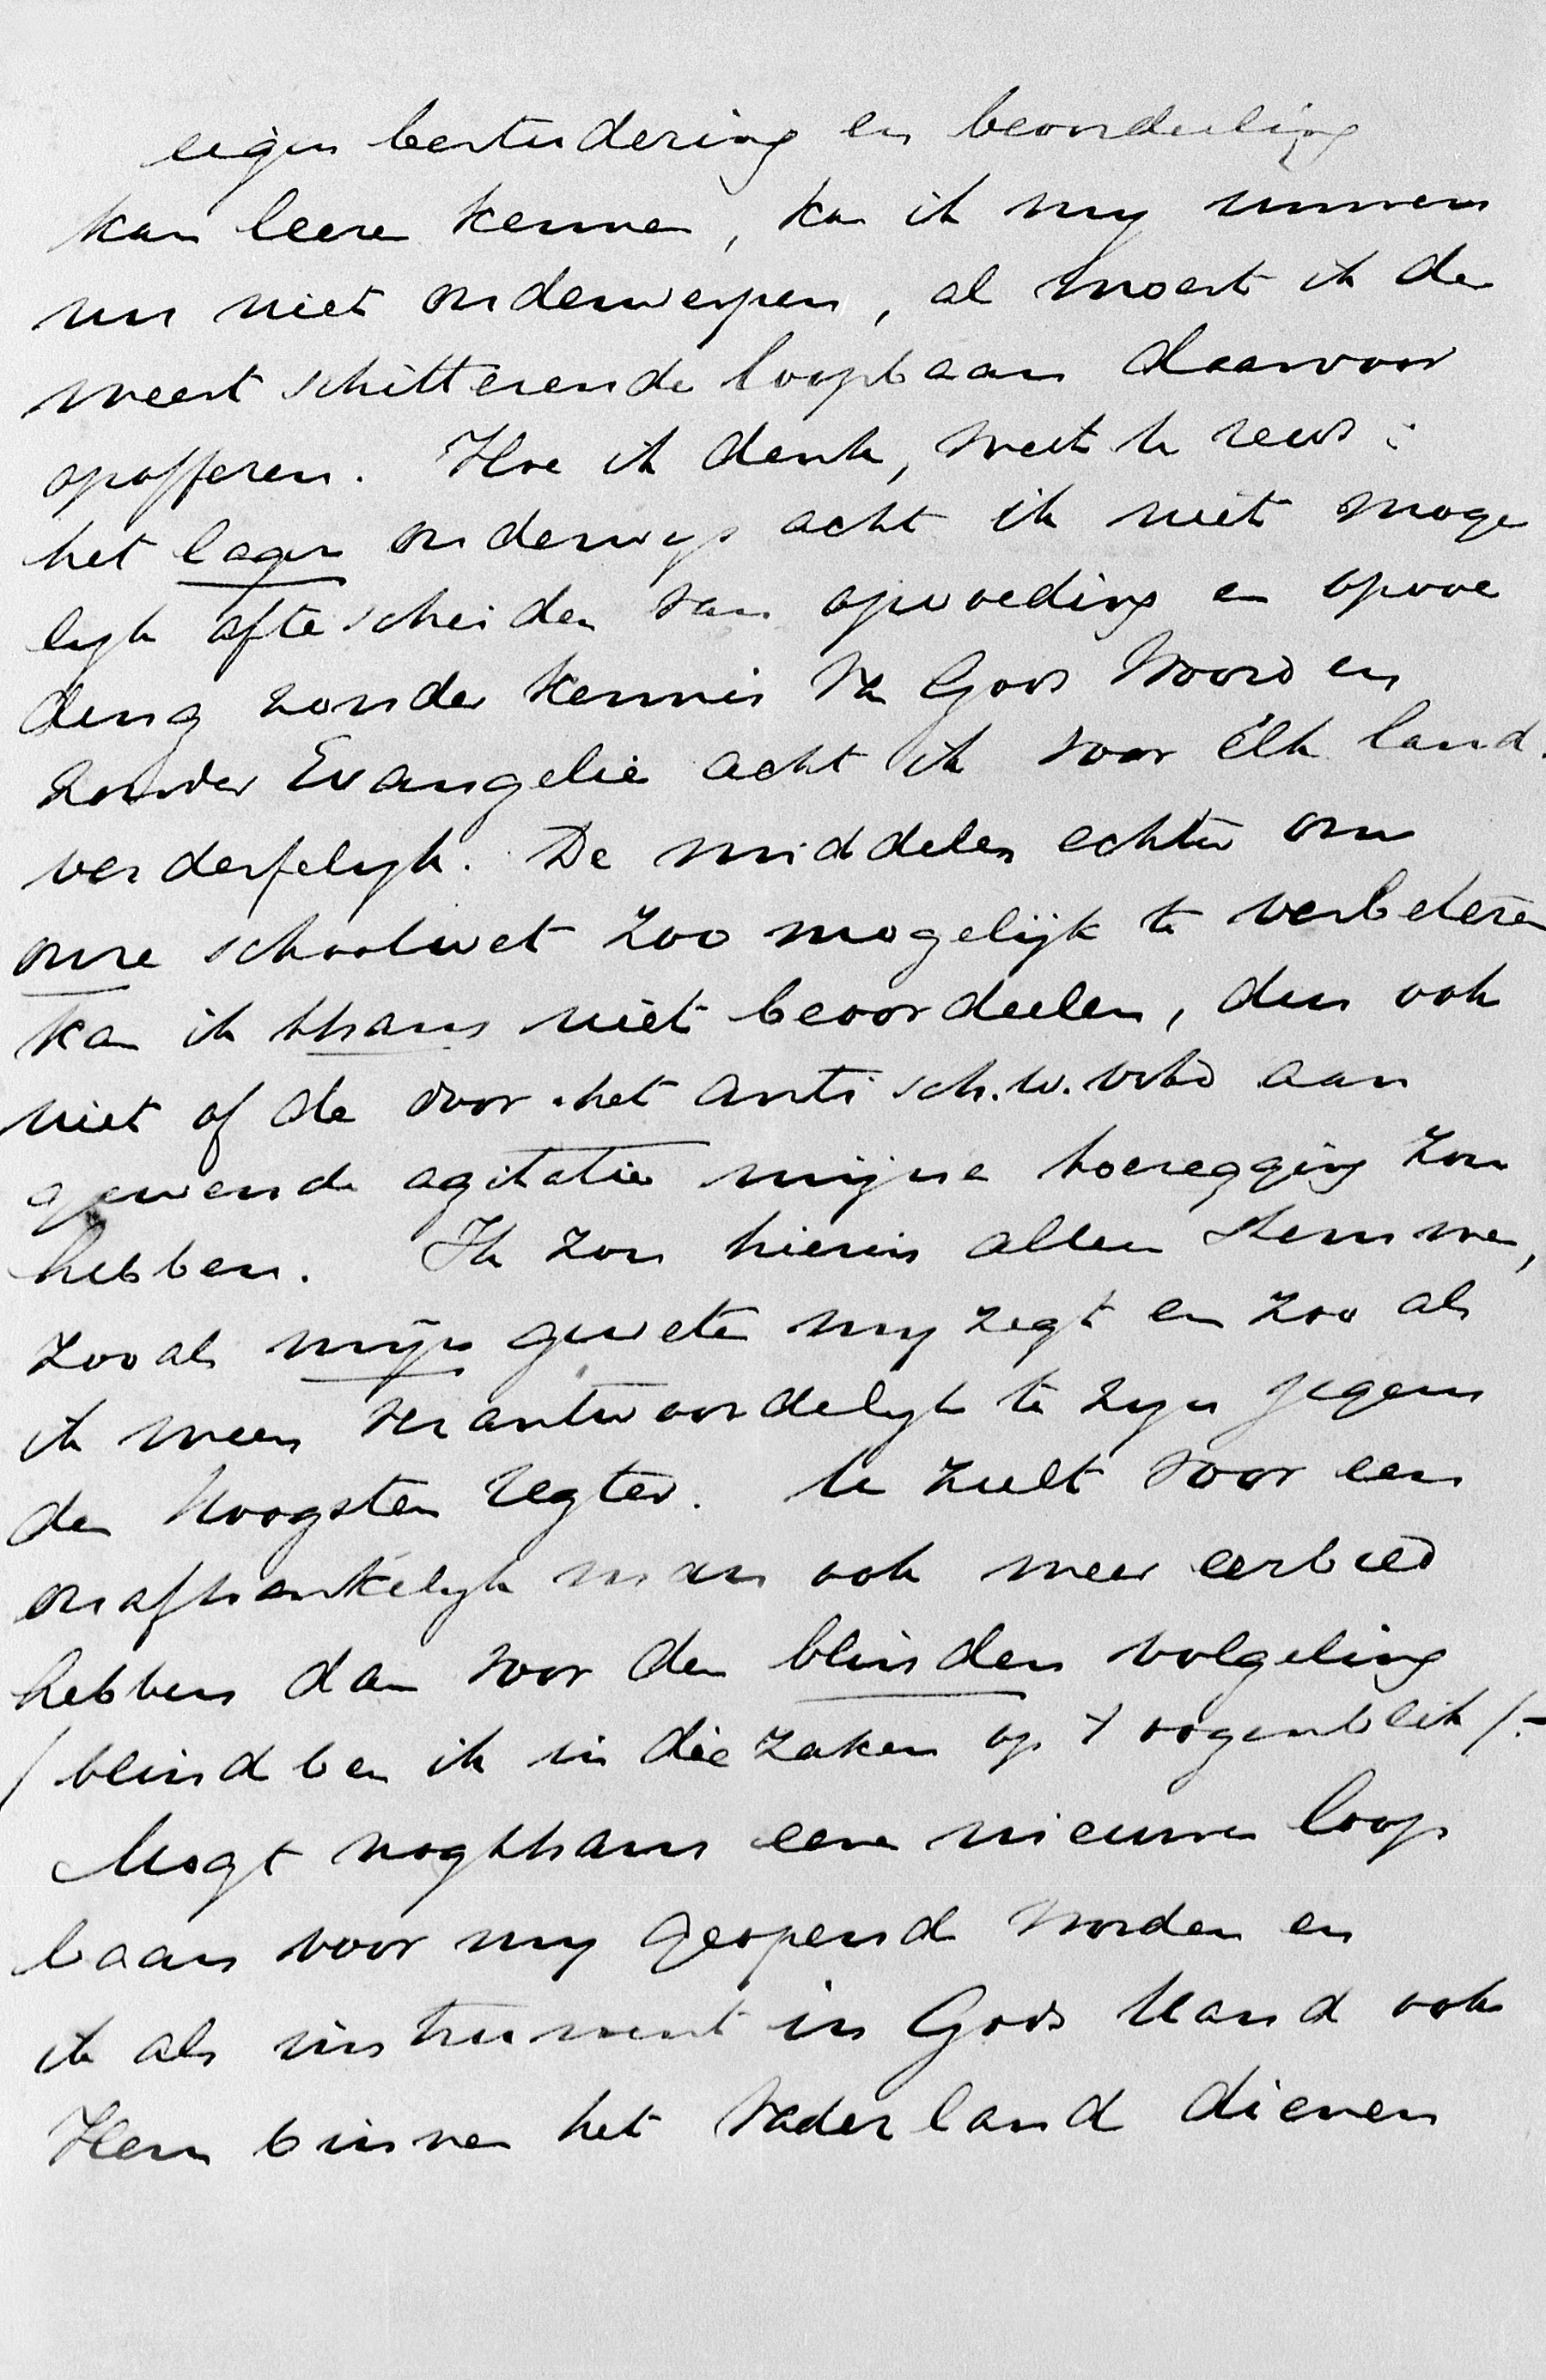 eigen bestudering en beoordeeling
kan leeren kennen, kan ik my immers
nu niet onderwerpen, al moest ik de
meest schitterende loopbaan daarvoor
opofferen. Hoe ik denk, weet U reeds:
het lager onderwys acht ik niet moge
lyk afte scheiden van opvoeding en opvoe
ding zonder kennis van Gods Woord en
zonder Evangelie acht ik voor elk land
verderfelyk. De middelen echter om
onze schoolwet zoo mogelijk te verbeteren
kan ik thans niet beoordeelen, dus ook
niet of de door het anti sch.w. verbd aan
gewende agitatie mijne toezegging zou
hebben. Ik zou hierin alleen stemmen,
zooals mijn geweten my zegt en zoo als
ik meen verantwoordelyk te zyn jegens
den Hoogsten Regter. U zult voor een
onafhankelyk man ook meer eerbied
hebben dan voor den blinden volgeling
/blind ben ik in die zaken op 't oogenblik/.-
Mogt nogthans eene nieuwe loop
baan voor my geopend worden en
ik als instrument in Gods Hand ook
Hem binnen het Vaderland dienen